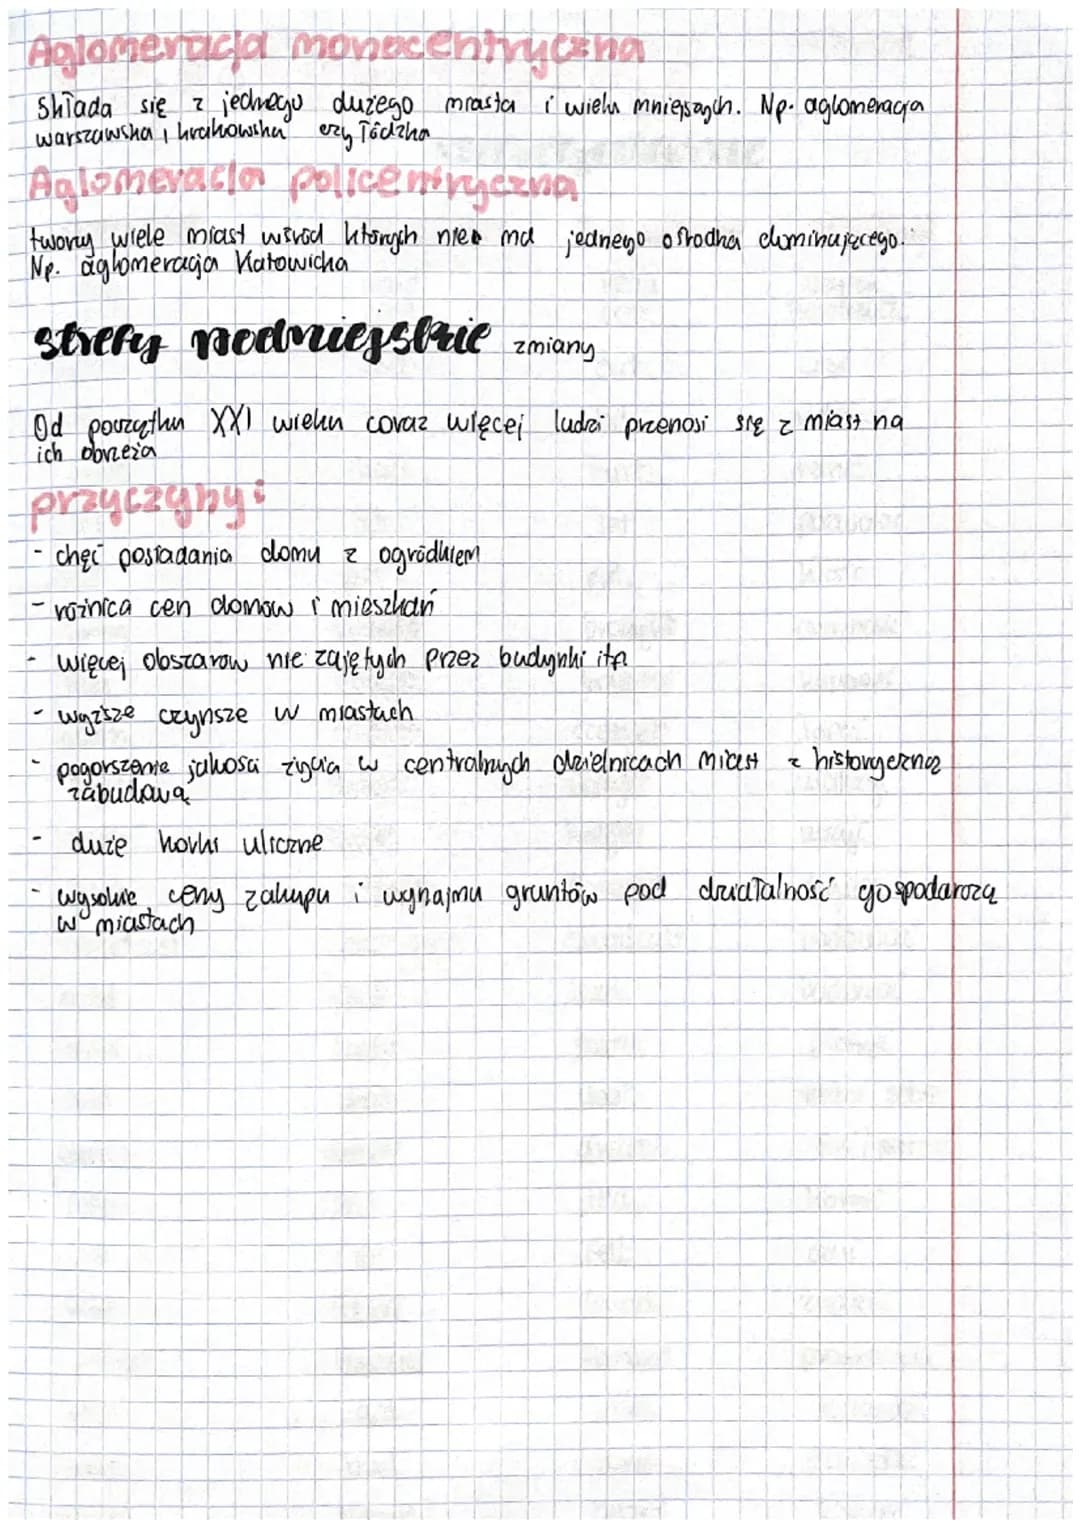 Aglomeracja monocentryczna
Składa się z jednego dużego miasta i wielu mniejszych. Np. aglomeracja
warszawska, krakowska czy łódzka
Aglomeracja policentryczna
tworzy wiele miast wśród których nie ma jednego ośrodka dominującego.
Np. aglomeracja Katowicka
strefy podmiejskie zmiany
Od początku XXI wieku coraz więcej ludzi przenosi się z miast na
ich obrzeża
przyczyny:
- chęć posiadania domu z ogródkiem
- różnica cen domów i mieszkań
- więcej obszarów nie zajętych przez budynki itp.
- wyższe czynsze w miastach
- pogorszenie jakości życia w centralnych dzielnicach miast z historyczną
zabudową
- duże korki uliczne
- wysokie ceny zakupu i wynajmu gruntów pod działalność gospodarczą
w miastach